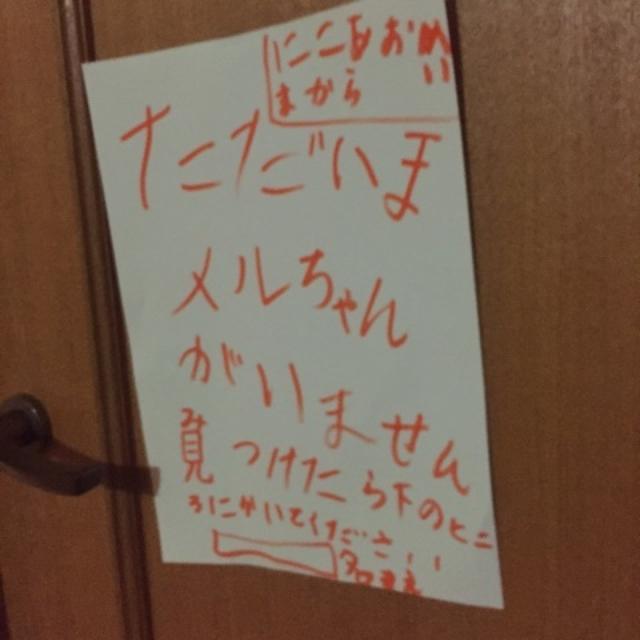 ここをおめい
まから
ただいま
メルちゃん
がいません
見つけたら下のとこ
ろにかいてください
名まえ